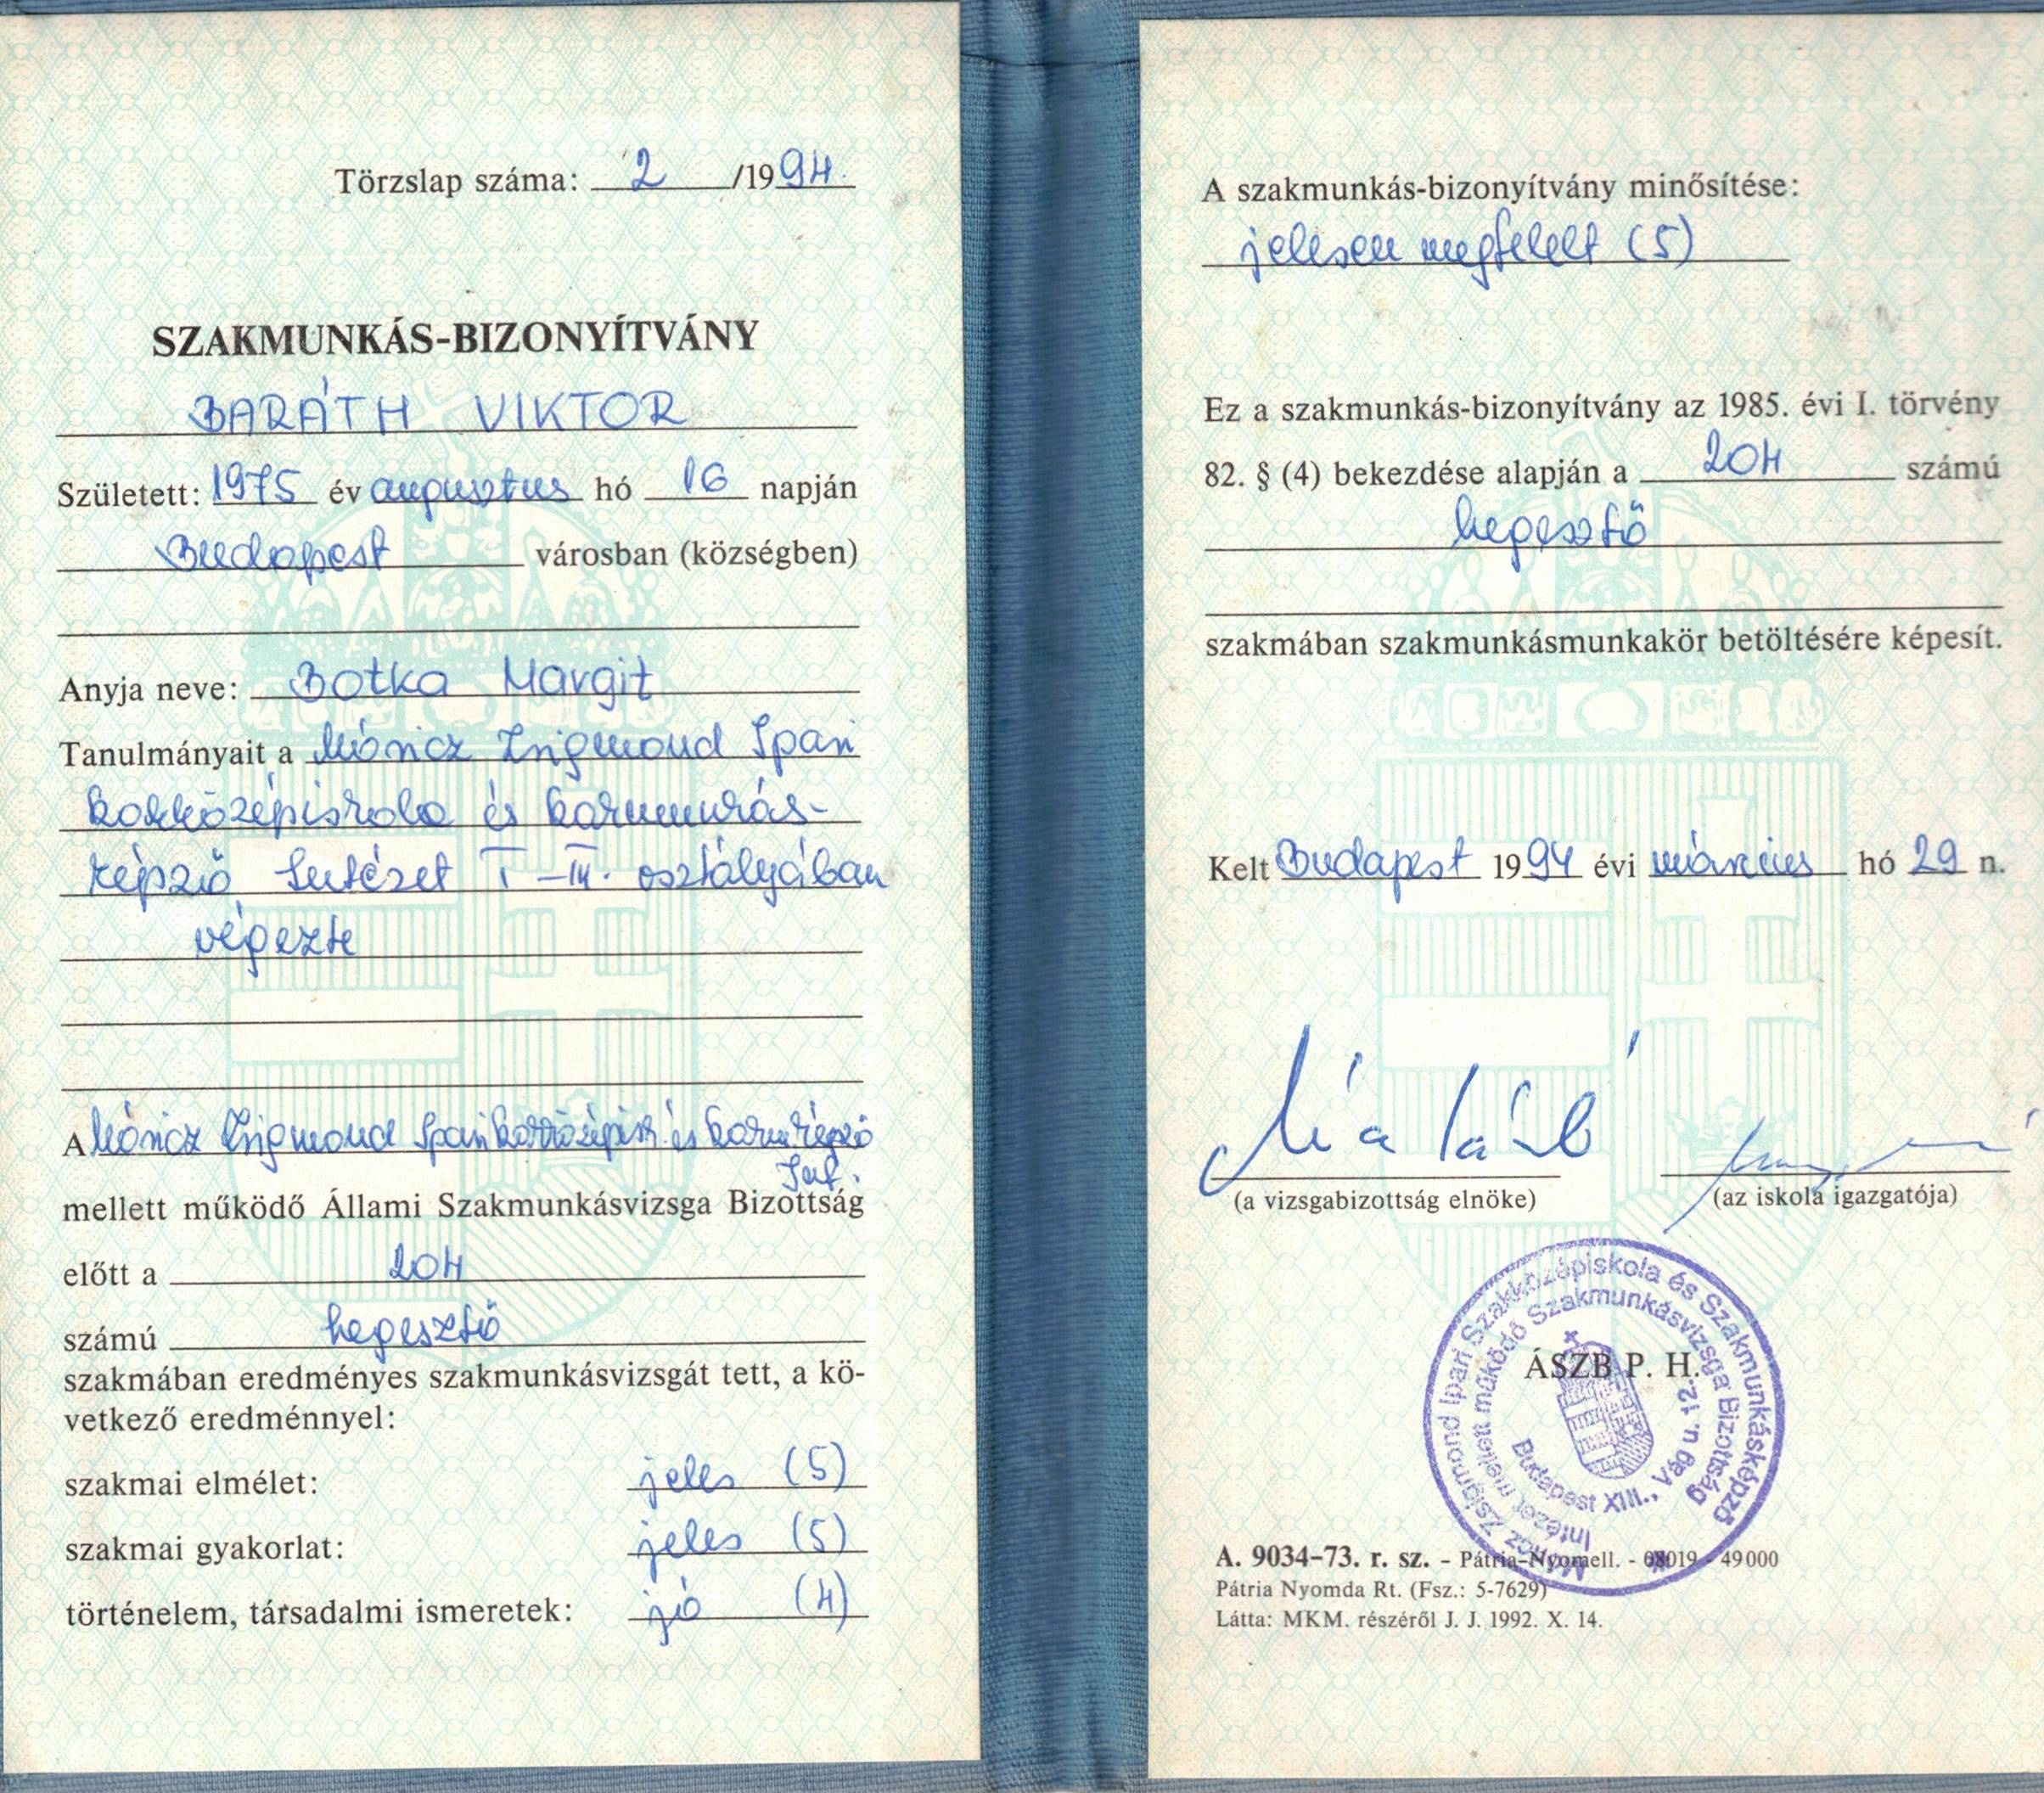 Törzslap száma: 2 /1994.
SZAKMUNKÁS-BIZONYÍTVÁNY
BARÁTH VIKTOR
Született: 1975 év augusztus hó 16 napján
Budapest városban (községben)
Anyja neve: Botka Margit
Tanulmányait a Móricz Zsigmond Ipari
Szakközépiskola és Szakmunkás-
képző Intézet I-III. osztályában
végezte
A Móricz Zsigmond Ipari Szakközépisk. és Szakm.képző
Int.
mellett működő Állami Szakmunkásvizsga Bizottság
előtt a 204
számú hegesztő
szakmában eredményes szakmunkásvizsgát tett, a kö-
vetkező eredménnyel:
szakmai elmélet: jeles (5)
szakmai gyakorlat: jeles (5)
történelem, társadalmi ismeretek: jó (4)
A szakmunkás-bizonyítvány minősítése:
jelesen megfelelt (5)
Ez a szakmunkás-bizonyítvány az 1985. évi I. törvény
82. § (4) bekezdése alapján a 204 számú
hegesztő
szakmában szakmunkásmunkakör betöltésére képesít.
Kelt Budapest 1994 évi március hó 29 n.
(a vizsgabizottság elnöke) (az iskola igazgatója)
Móricz Zsigmond Ipari Szakközépiskola és Szakmunkásképző
Intézet mellett működő Szakmunkásvizsga Bizottság
Budapest XIII., Vág u. 12.
ÁSZB P. H.
A. 9034-73. r. sz. - Pátria-Nyomell. - 08019 - 49000
Pátria Nyomda Rt. (Fsz.: 5-7629)
Látta: MKM. részéről J. J. 1992. X. 14.